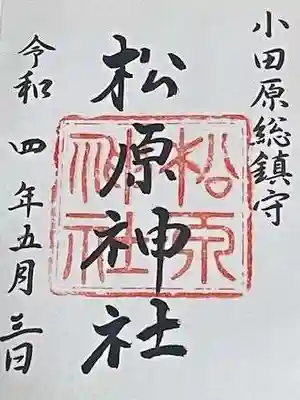 小田原総鎮守
松原神社
松原
神社
令和四年五月三日